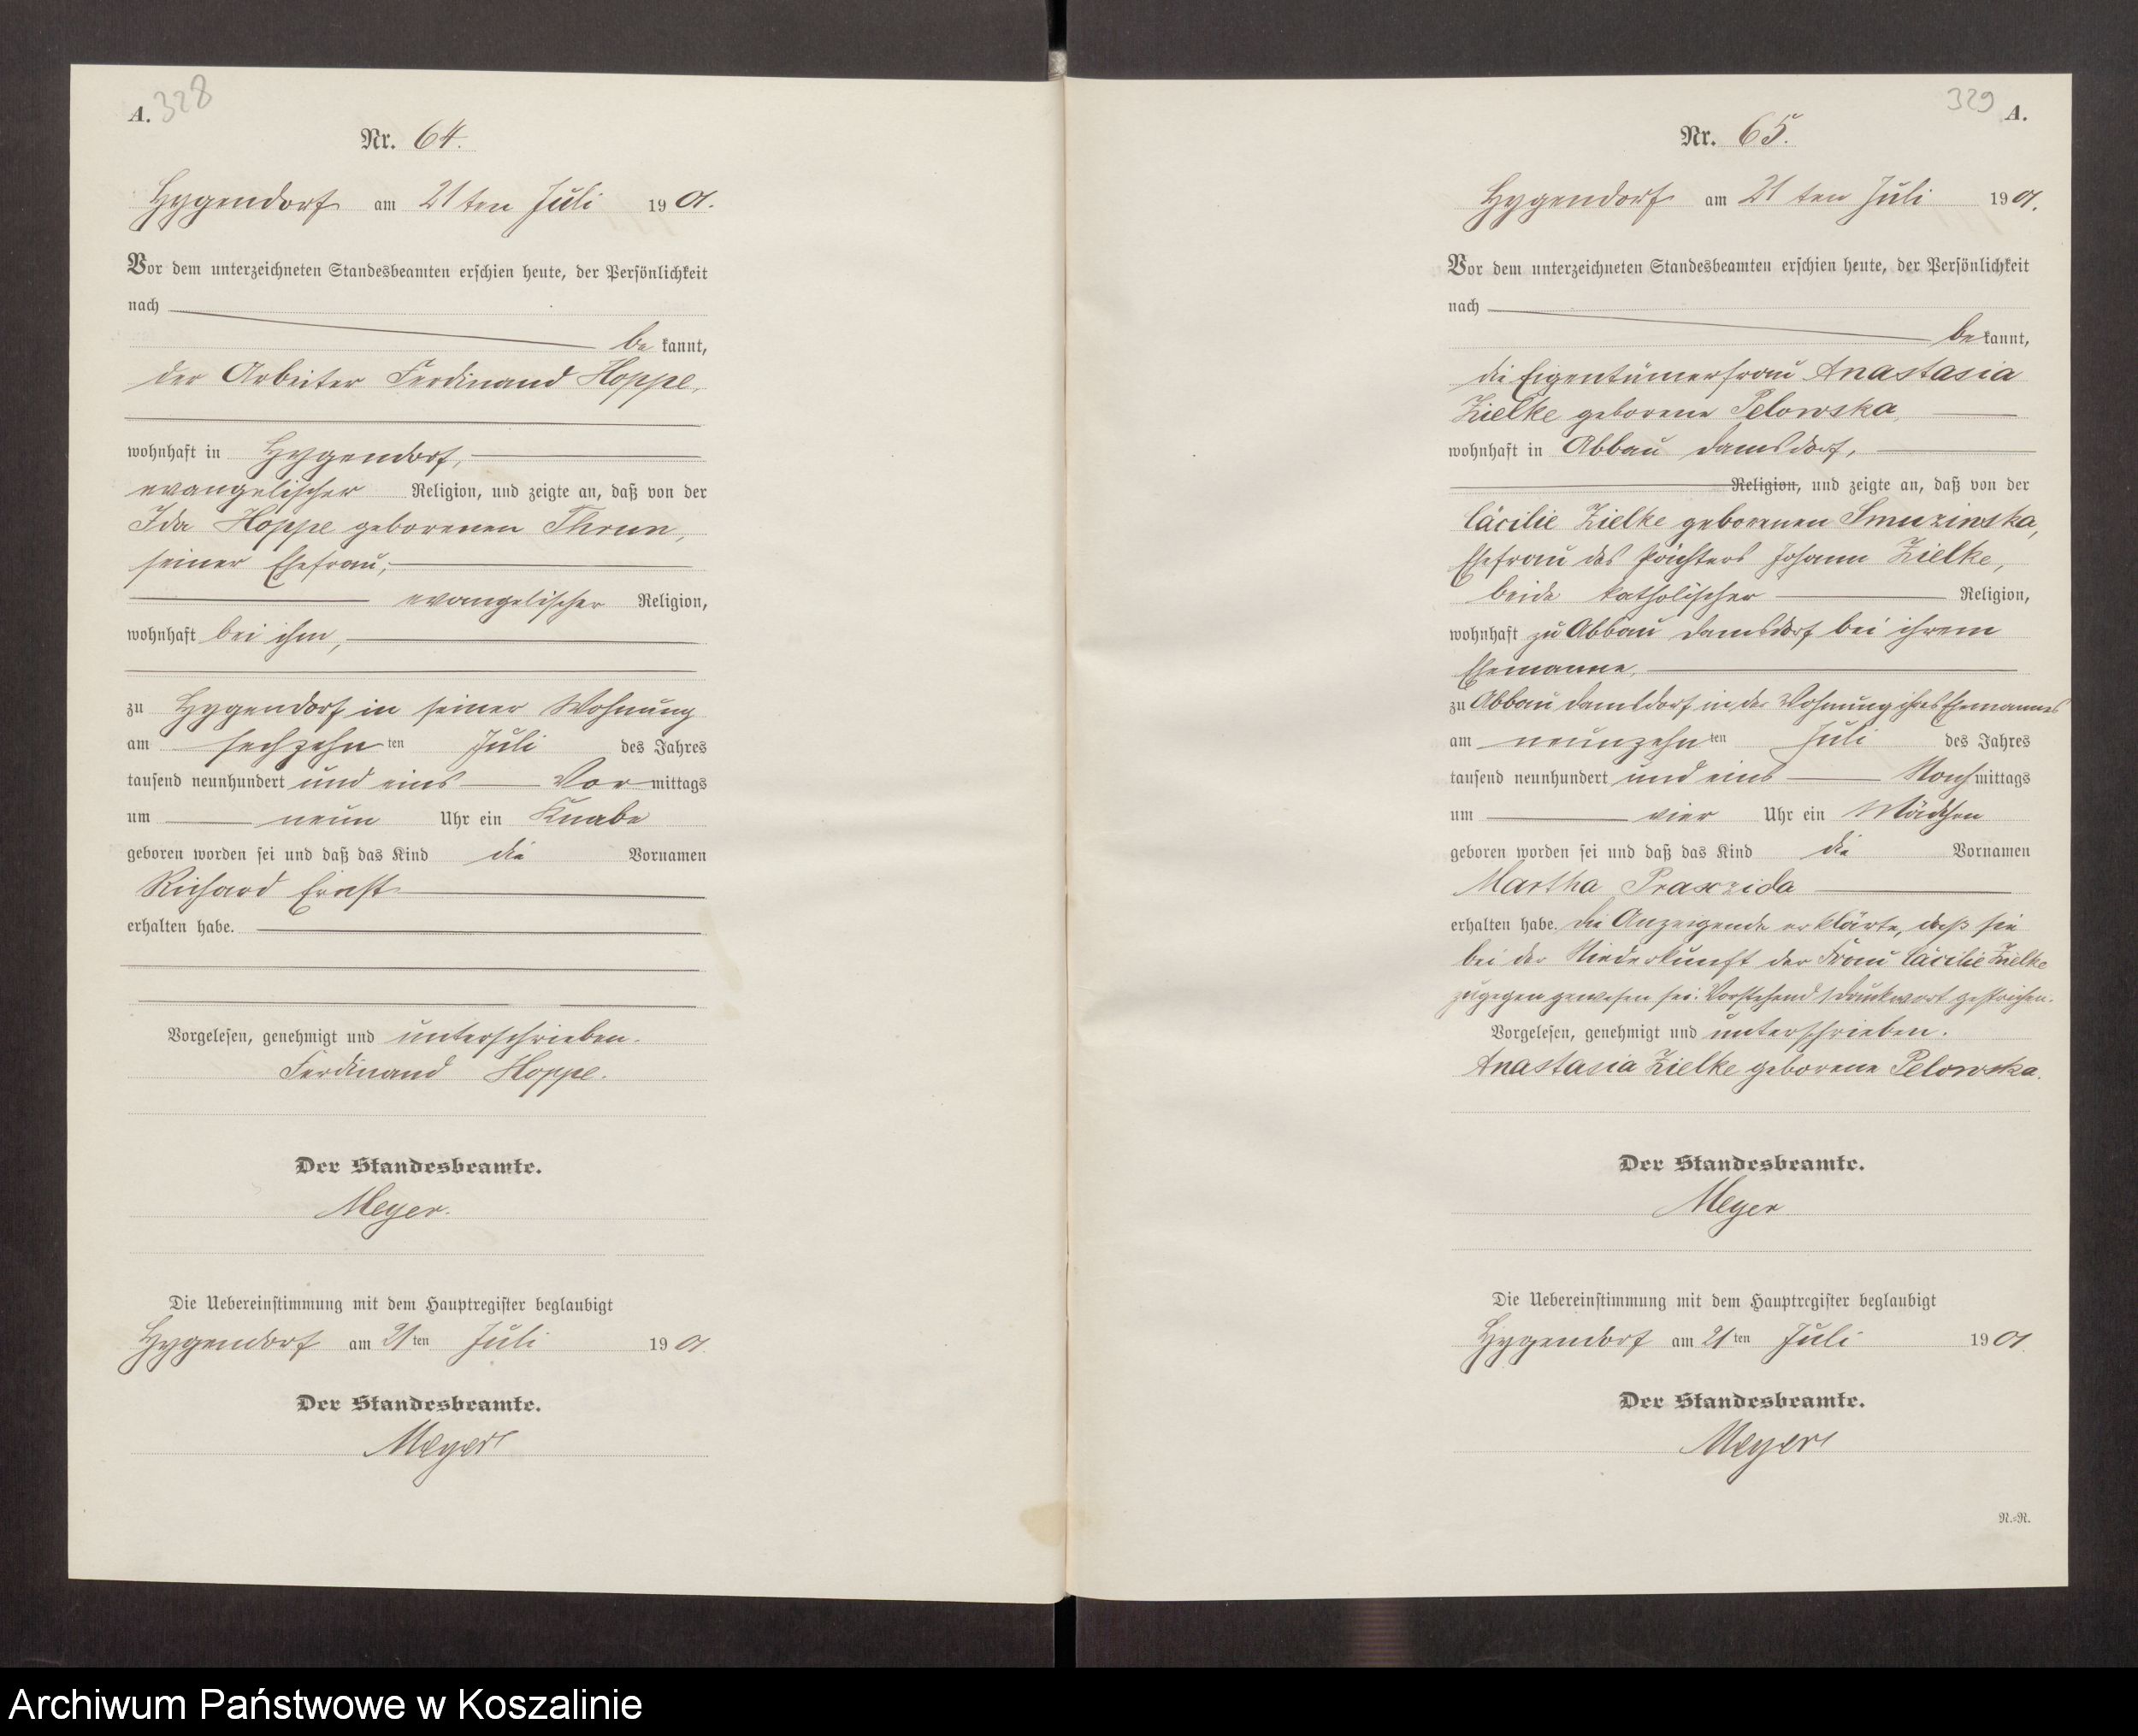 A. 328
Nr. 64.
Hygendorf am 21ten Juli 1901.
Vor dem unterzeichneten Standesbeamten erschien heute, der Persönlichkeit
nach
be kannt,
der Arbeiter Ferdinand Hoppe,
wohnhaft in Hygendorf,
evangelischer Religion, und zeigte an, daß von der
Ida Hoppe geborenen Thrun,
seiner Ehefrau,
evangelischer Religion,
wohnhaft bei ihm,
zu Hygendorf in seiner Wohnung
am sechzehn ten Juli des Jahres
tausend neunhundert und eins Vor mittags
um neun Uhr ein Knabe
geboren worden sei und daß das Kind die Vornamen
Richard Ernst
erhalten habe.
Vorgelesen, genehmigt und unterschrieben.
Ferdinand Hoppe.
Der Standesbeamte.
Meyer.
Die Uebereinstimmung mit dem Hauptregister beglaubigt
Hygendorf am 21ten Juli 1901
Der Standesbeamte.
Meyer
329 A.
Nr. 65.
Hygendorf am 21 ten Juli 1901.
Vor dem unterzeichneten Standesbeamten erschien heute, der Persönlichkeit
nach
be kannt,
die Eigentümerfrau Anastasia
Zielke geborene Pelowska,
wohnhaft in Abbau Damsdorf,
Religion, und zeigte an, daß von der
Cäcilie Zielke geborenen Smuzinska,
Ehefrau des Pächters Johann Zielke,
beide katholischer Religion,
wohnhaft zu Abbau Damsdorf bei ihrem
Ehemanne,
zu Abbau Damsdorf in der Wohnung ihres Ehemannes
am neunzehn ten Juli des Jahres
tausend neunhundert und eins Nach mittags
um vier Uhr ein Mädchen
geboren worden sei und daß das Kind die Vornamen
Martha Praxzida
erhalten habe. Die Anzeigende erklärte, daß sie
bei der Niederkunft der Frau Cäcilie Zielke
zugegen gewesen sei. Vorstehend 1 Druckwort gestrichen.
Vorgelesen, genehmigt und unterschrieben.
Anastasia Zielke geborene Pelowska.
Der Standesbeamte.
Meyer
Die Uebereinstimmung mit dem Hauptregister beglaubigt
Hygendorf am 21ten Juli 1901
Der Standesbeamte.
Meyer
R.=R.
Archiwum Państwowe w Koszalinie